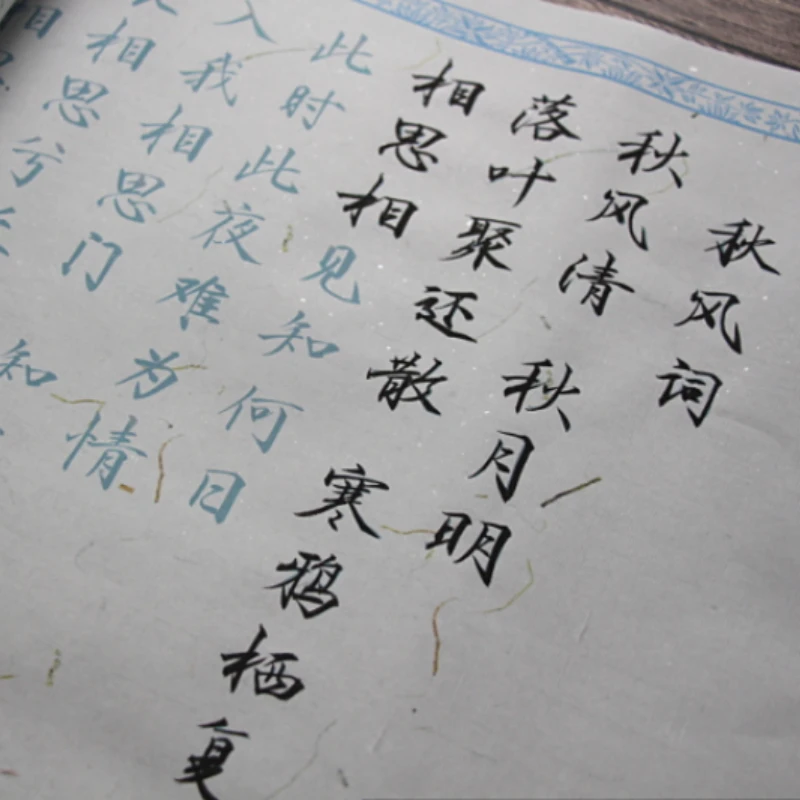 秋风词
秋风清 秋月明
落叶聚还散 寒鸦栖复
相思相见知何日
此时此夜难为情
入我相思门 知
相思兮
相